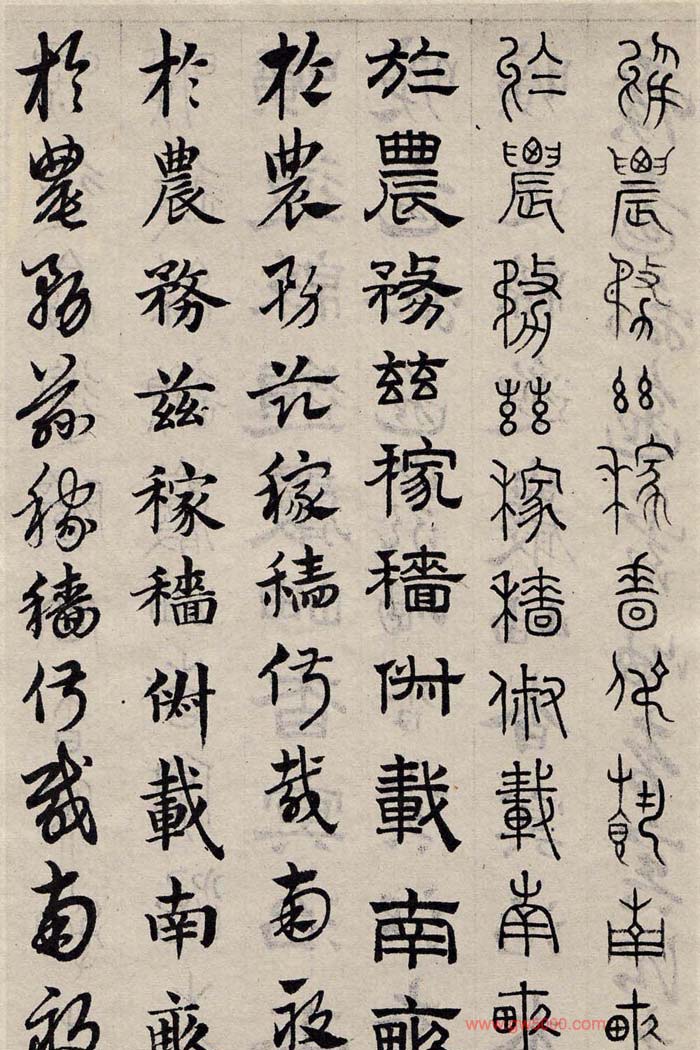 於農務茲稼穡俶載南畝
於農務茲稼穡俶載南畝
於農務茲稼穡俶載南畝
於農務茲稼穡俶載南畝
於農務茲稼穡俶載南畝
於農務茲稼穡俶載南畝